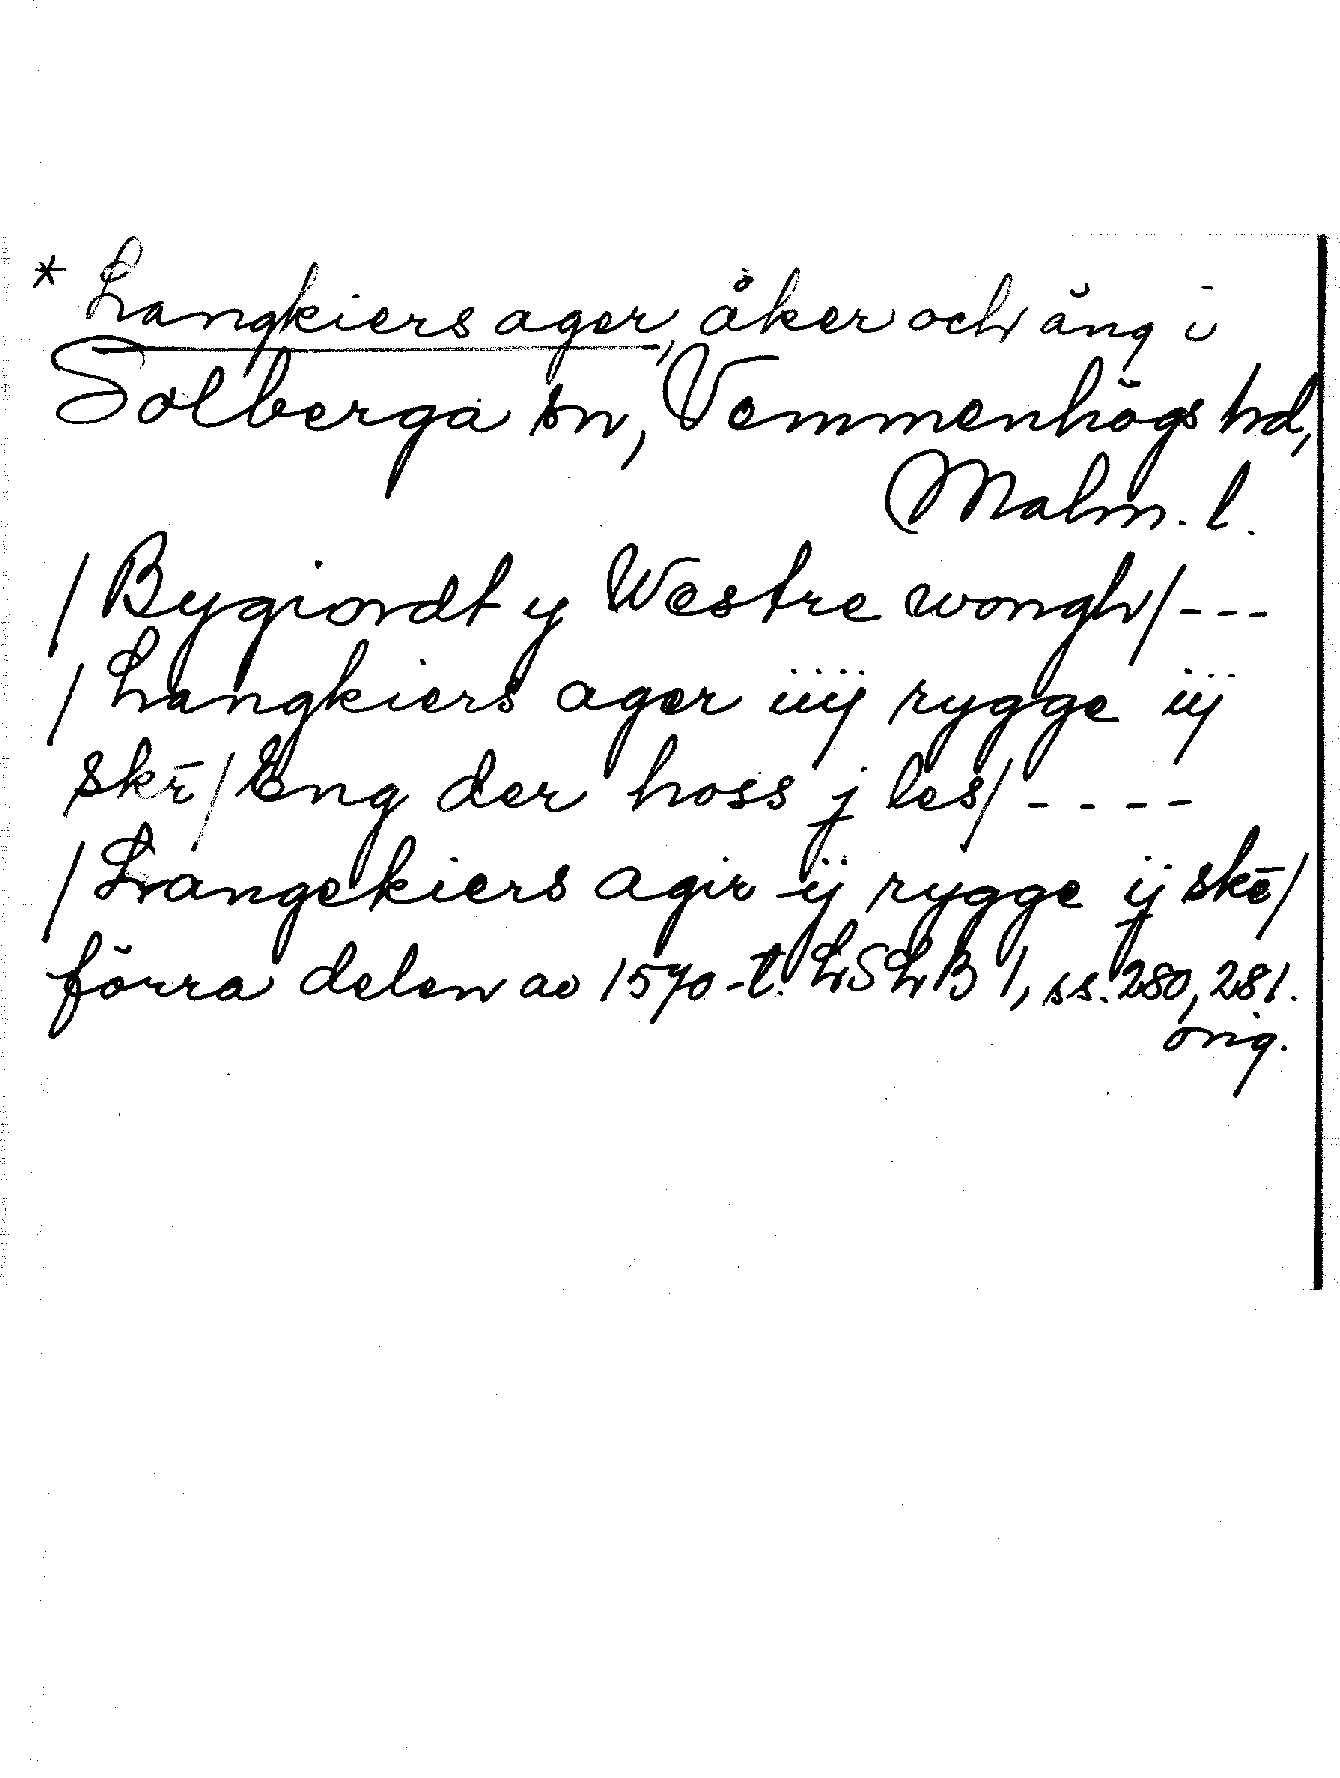 * Langkiers ager, åker och äng i
Solberga sn, Vemmenhögs hd,
Malm. l.
/ Bygiordt y Westre wongh / ---
/ Langkiers ager iiij rygge iij
skē / Eng der hoss j les / ----
/ Langekiers agir ij rygge ij skē /
förra delen av 1570-t. LSLB 1, ss. 280, 281.
orig.